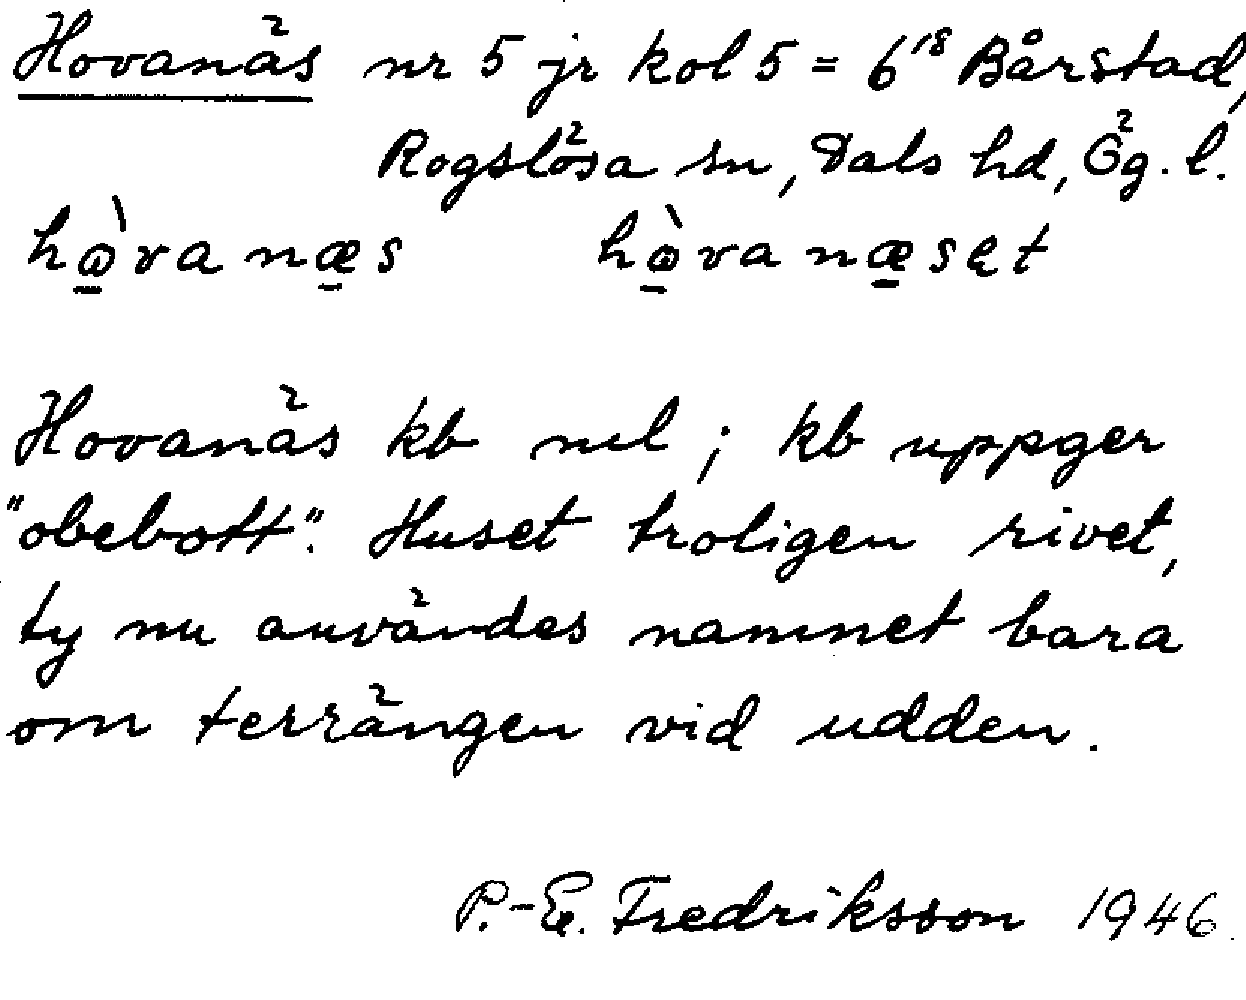 Hovanäs nr 5 jr kol 5 = 6¹⁸ Bårstad,
Rogslösa sn, Dals hd, Ög. l.
hὼvanæs hὼvanæset
Hovanäs kb nul ; kb uppger
"obebott". Huset troligen rivet,
ty nu användes namnet bara
om terrängen vid udden.
P.-E. Fredriksson 1946.